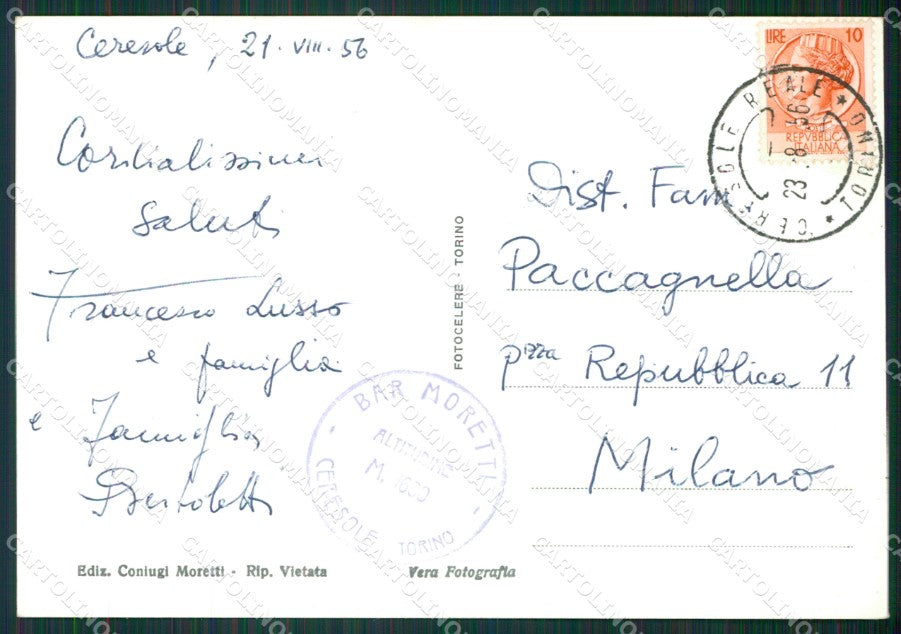 Ceresole, 21. VIII. 56
Cordialissimi
saluti
Francesco Lusso
e famiglia
e Famiglia
Bertoletti
LIRE 10
REPVBBLICA
ITALIANA
CERESOLE REALE * TORINO *
23.8.56
Dist. Fam
Paccagnella
pzza Repubblica 11
Milano
FOTOCELERE - TORINO
- BAR MORETTI -
ALTITUDINE
M. 1600
CERESOLE TORINO
Ediz. Coniugi Moretti - Rip. Vietata
Vera Fotografia
CARTOLINOMANIA